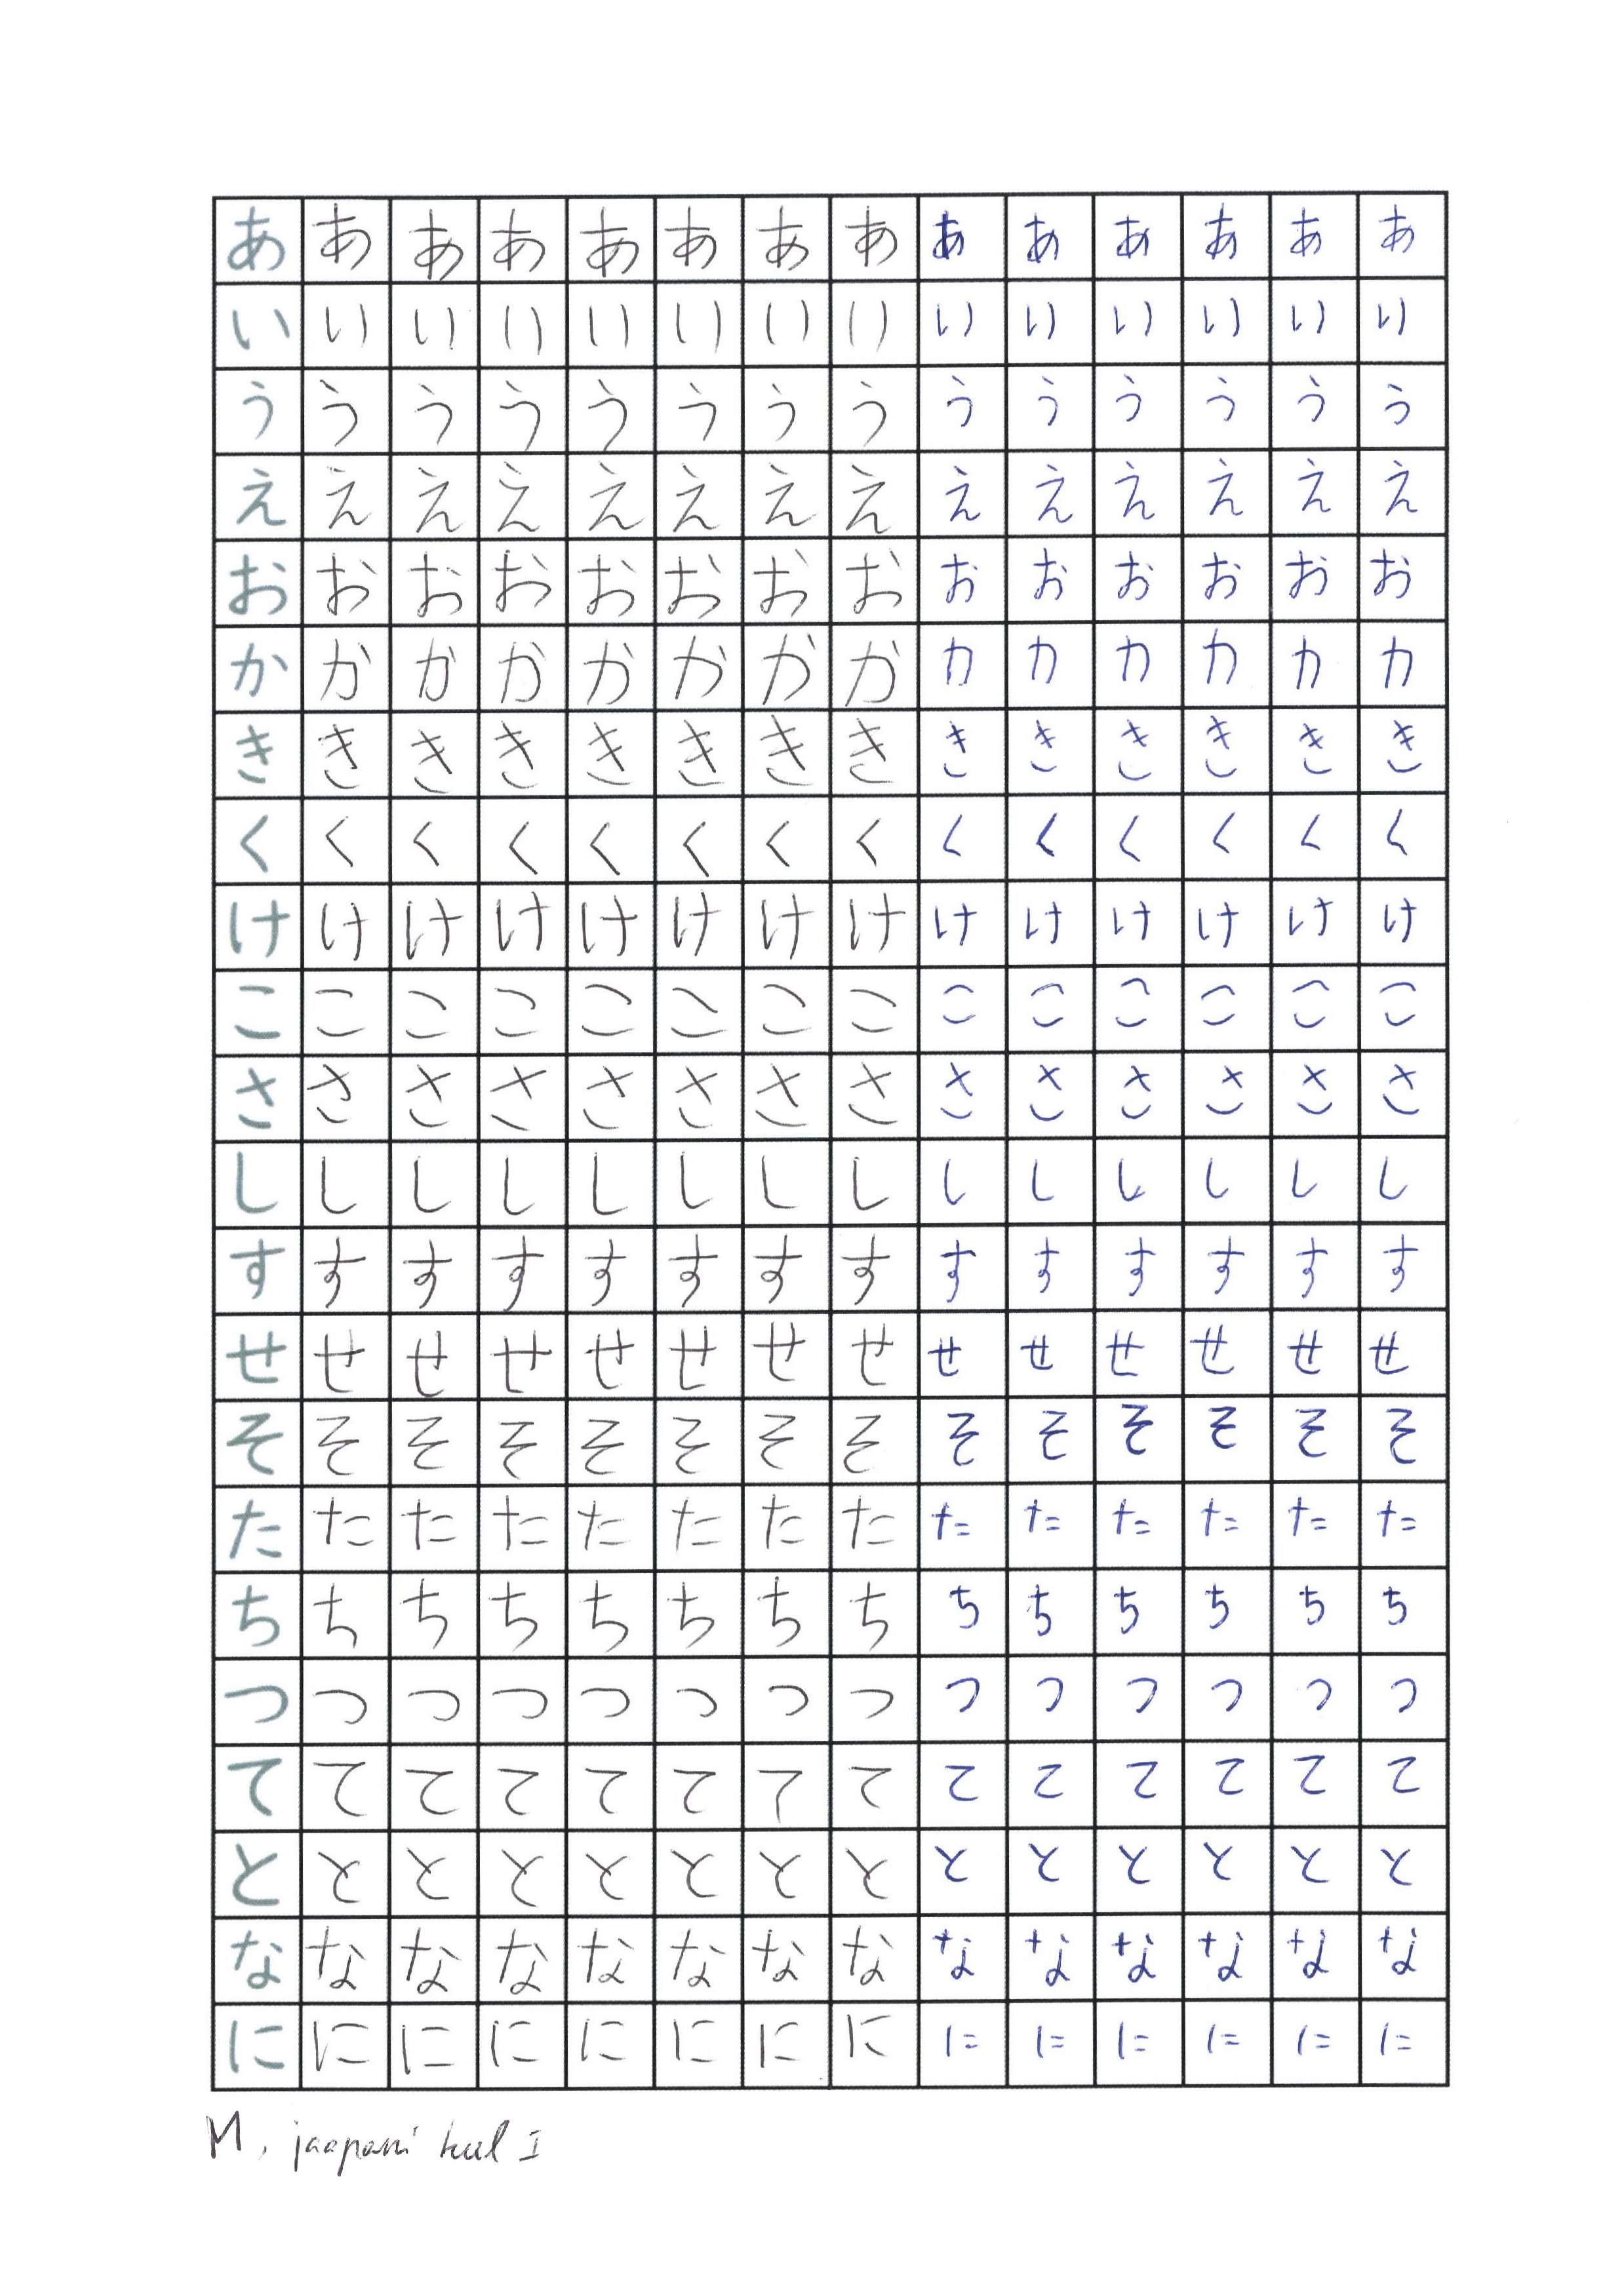 あ あ あ あ あ あ あ あ あ あ あ あ あ あ
い い い い い い い い い い い い い い
う う う う う う う う う う う う う う
え え え え え え え え え え え え え え
お お お お お お お お お お お お お お
か か か か か か か か か か か か か か
き き き き き き き き き き き き き き
く く く く く く く く く く く く く く
け け け け け け け け け け け け け け
こ こ こ こ こ こ こ こ こ こ こ こ こ こ
さ さ さ さ さ さ さ さ さ さ さ さ さ さ
し し し し し し し し し し し し し し
す す す す す す す す す す す す す す
せ せ せ せ せ せ せ せ せ せ せ せ せ せ
そ そ そ そ そ そ そ そ そ そ そ そ そ そ
た た た た た た た た た た た た た た
ち ち ち ち ち ち ち ち ち ち ち ち ち ち
つ つ つ つ つ つ つ つ つ つ つ つ つ つ
て て て て て て て て て て て て て て
と と と と と と と と と と と と と と
な な な な な な な な な な な な な な
に に に に に に に に に に に に に に
M, jaapani keel I